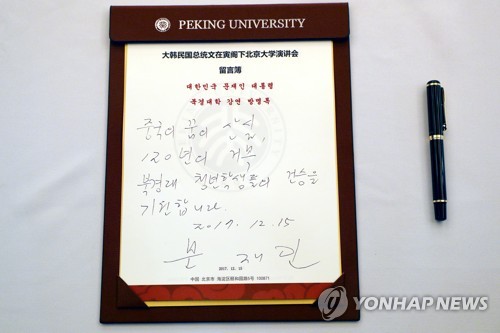 PEKING UNIVERSITY
大韩民国总统文在寅阁下北京大学演讲会
留言簿
대한민국 문재인 대통령
북경대학 강연 방명록
중국의 꿈의 산실,
120년의
북경대 청년학생들의 건승을
기원합니다.
2017. 12. 15
문 재 인
2017. 12. 15
中国 北京市 海淀区颐和园路5号 100871
YONHAP NEWS